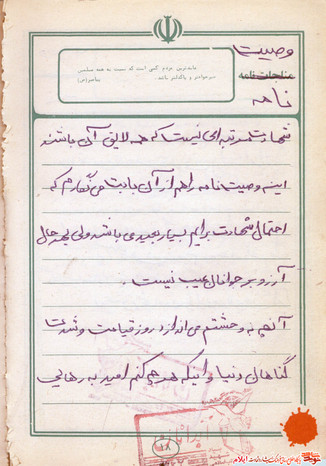 وصیت
مناجات نامه
نامه
عابدترین مردم کسی است که نسبت به همه مسلمین
خیرخواهتر و پاکدلتر باشد.
پیامبر(ص)
شهادت مرتبه ای نیست که همه لایق آن باشند
اینه وصیت نامه را هم از آن بابت می نگارم که
احتمال شهادت برایم بسیار بعید می باشد ولی بهر حال
آرزو بر جوانان عیب نیست.
آنچه به وحشتم می اندازد روز قیامت و شدت
گناهان دنیا و اینکه هر چه کنم امید به رهایی